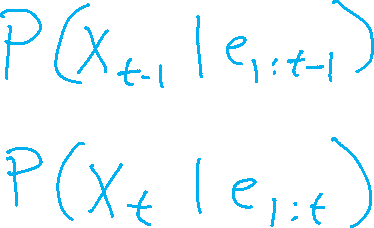 P(X_{t-1} | e_{1:t-1})
P(X_t | e_{1:t})